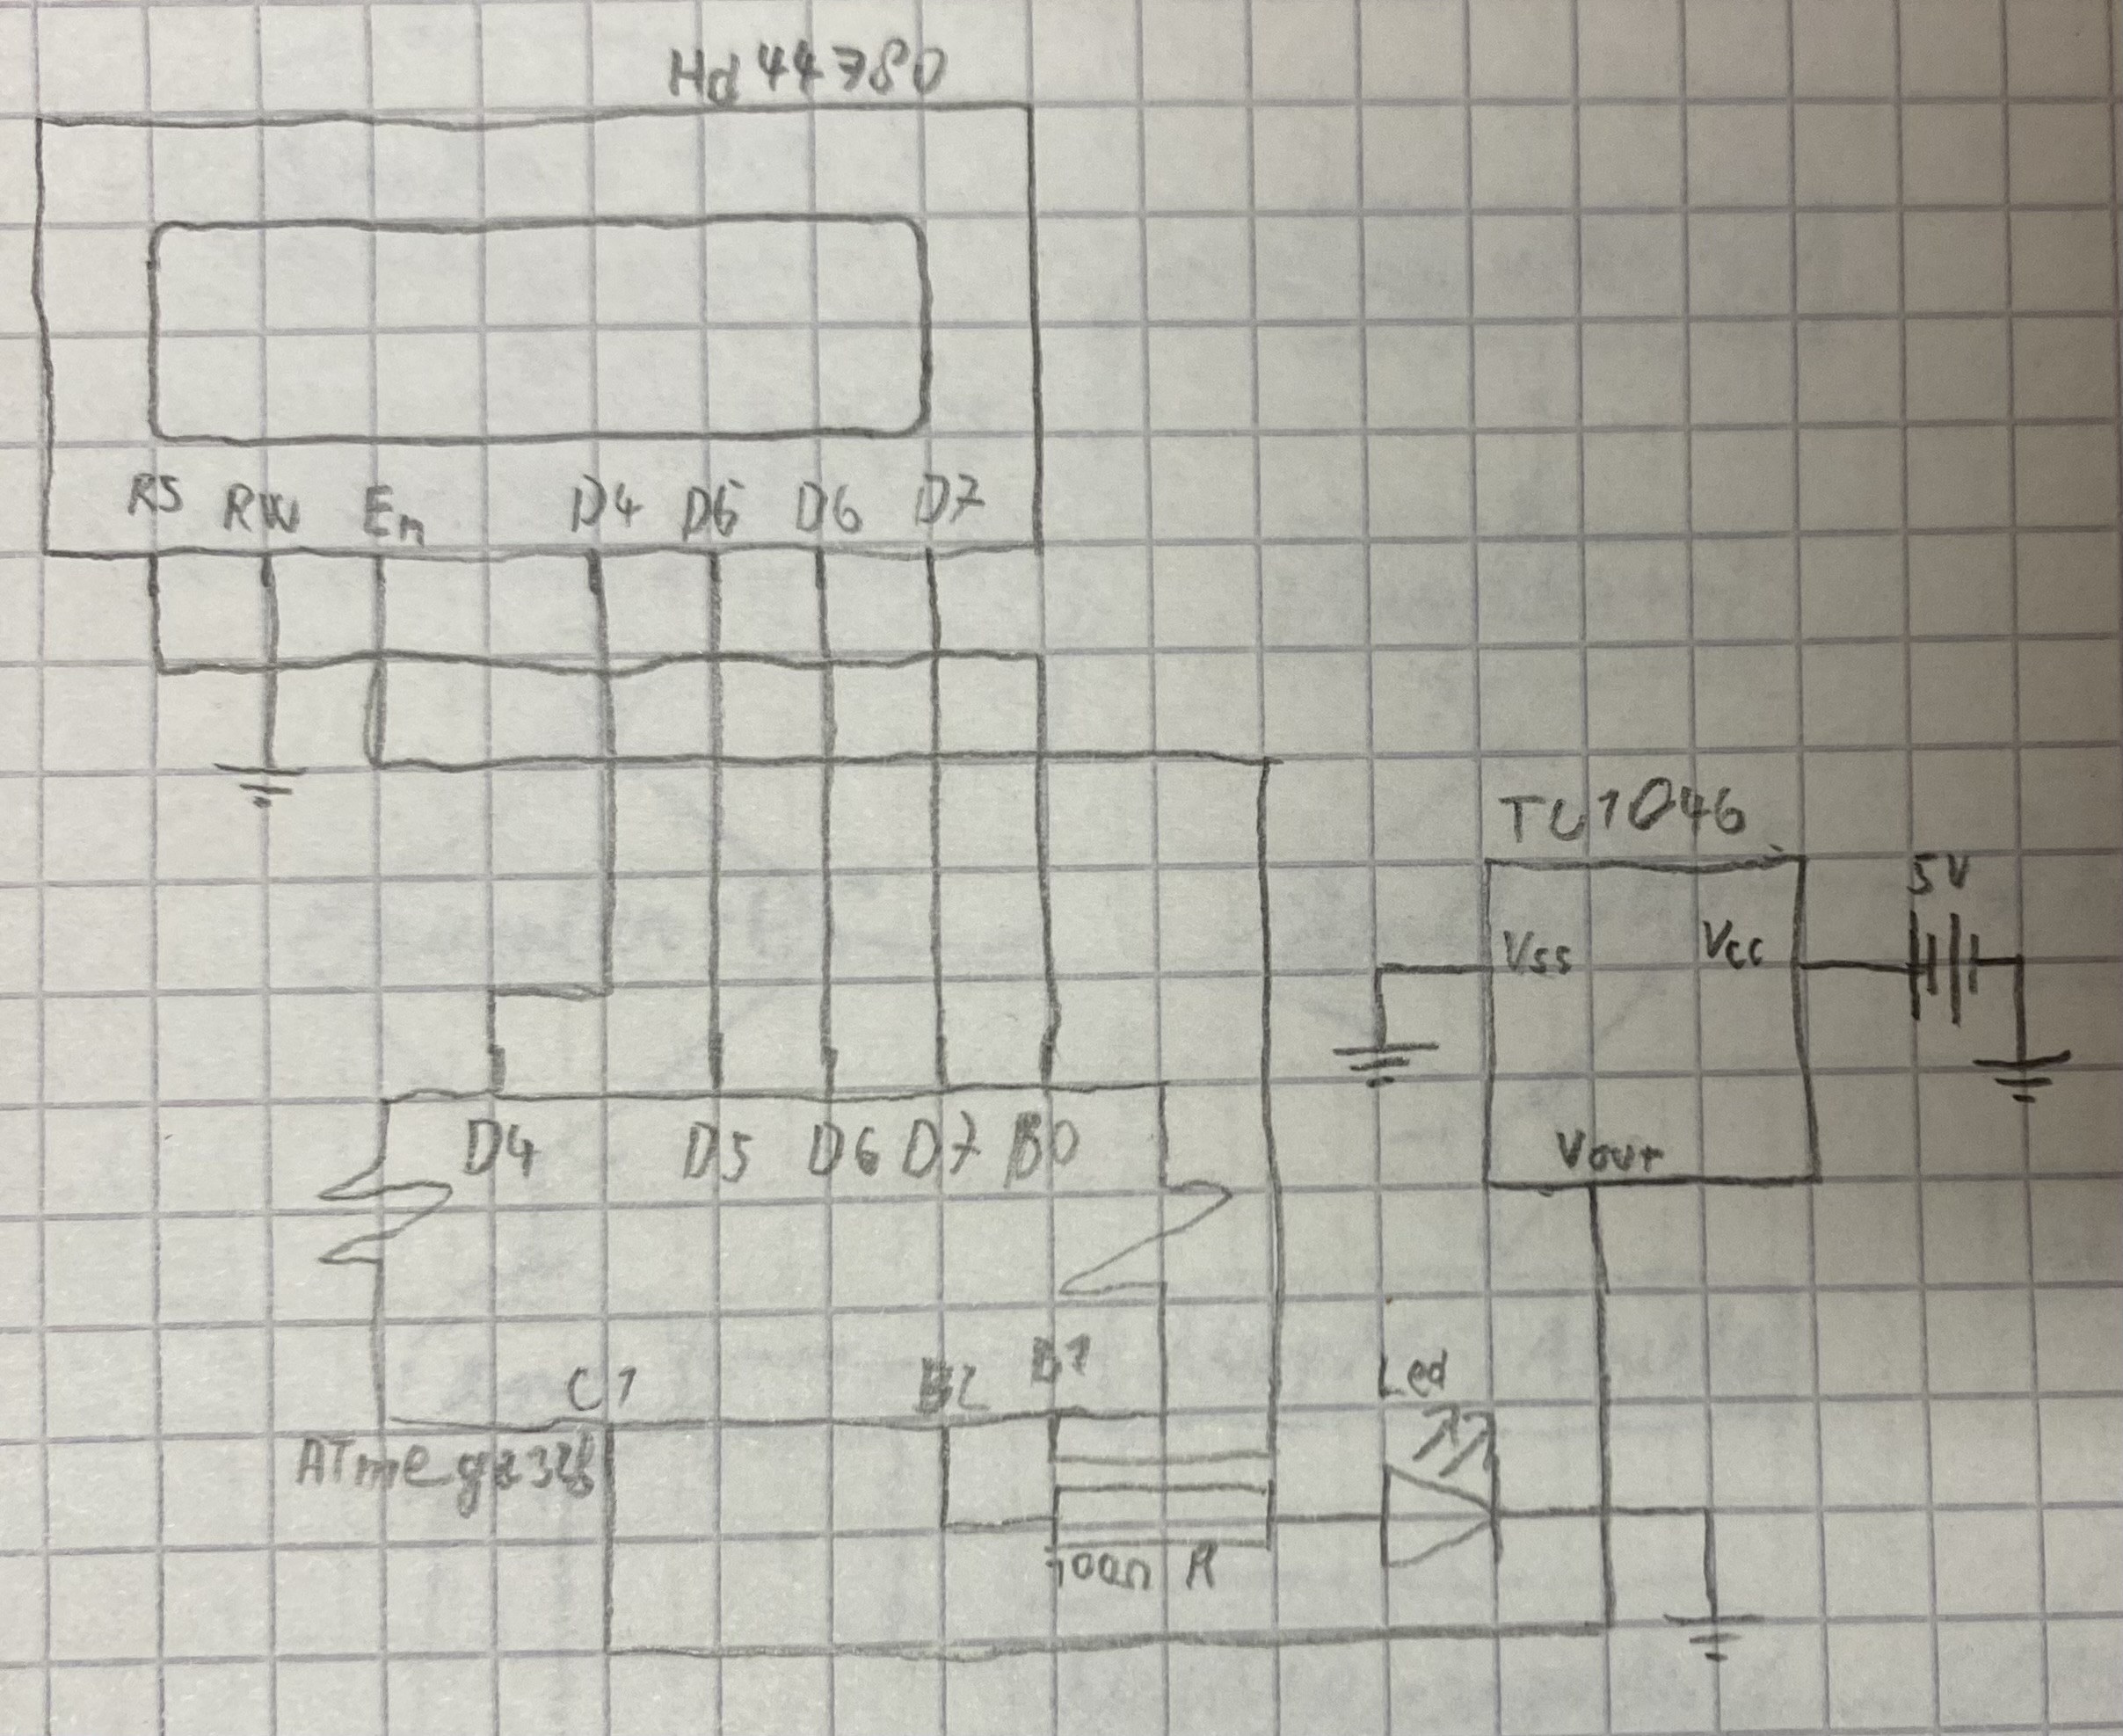 Hd44780
RS RW En D4 D5 D6 D7
TC1046
5V
Vss Vcc
D4 D5 D6 D7 B0
Vout
C1 B2 B1
Led
ATmega328
R